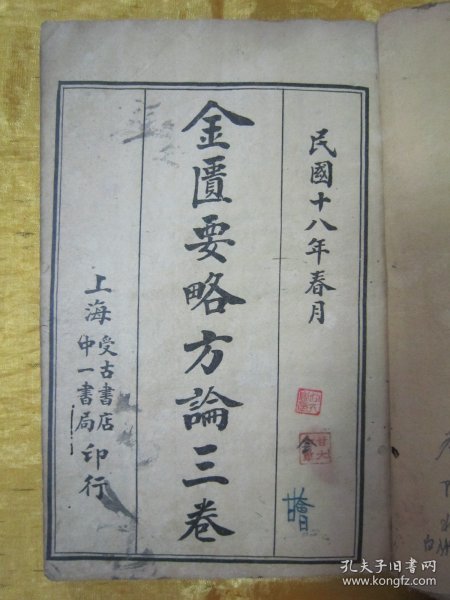 民國十八年春月
金匱要略方論三卷
上海
受古書店
中一書局
印行
孔夫子旧书网
www.kongfz.com